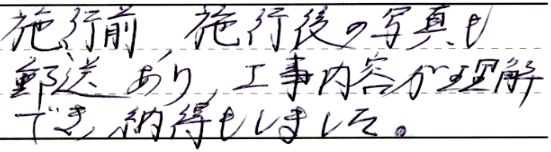 施行前、施行後の写真も
郵送あり、工事内容が理解
でき、納得もしました。